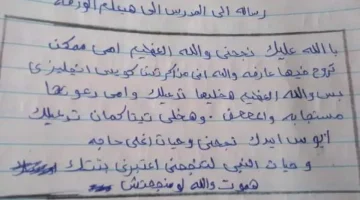 رسالة الى المدرس الى هيلم الورقة
با الله عليك نجحني والله العظيم امي ممكن
تروح فيها عارفه والله اني مذاكرتش كويس انجليزي
بس والله العظيم هخليها تدعيلك وامي دعوتها
مستجابه وهخلي تيتا كمان تدعيلك
ابوس ايدك نجحني وحيات اغلى حاجه
وحيات النبي لتنجحني اعتبرني بنتك
هموت والله لو منجحتش